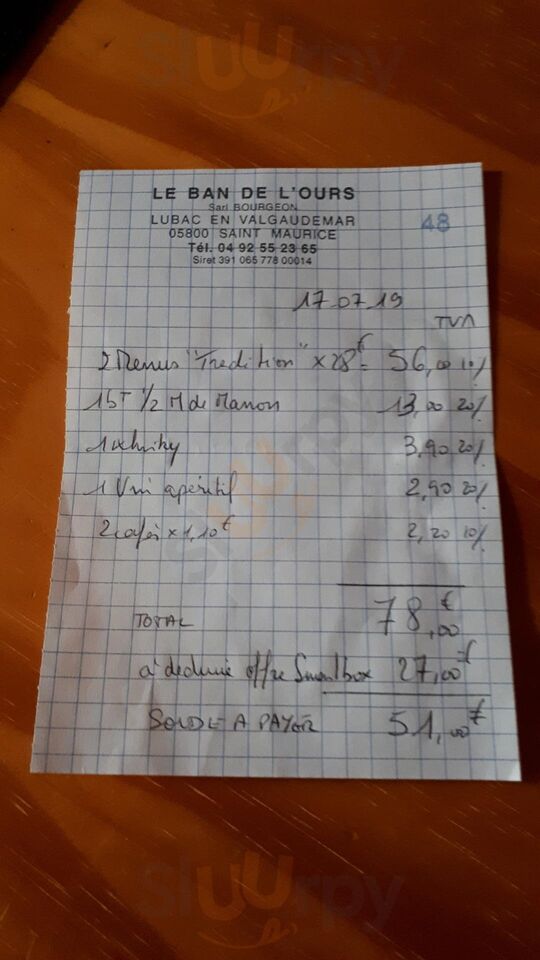 Sluurpy
LE BAN DE L'OURS
Sarl BOURGEON
LUBAC EN VALGAUDEMAR
05800 SAINT MAURICE
48
Tél. 04 92 55 23 65
Siret 391 065 778 00014
17-07-19
TVA
2 Menus "Tradition" x 28€ = 56,00 10%
1 bt 1/2 M de Manon 13,00 20%
1 whisky 3,90 20%
1 Vin apéritif 2,90 20%
2 cafés x 1,10€ 2,20 10%
TOTAL 78,00€
à déduire offre Smartbox 27,00€
SOLDE A PAYER 51,00€
Sluurpy